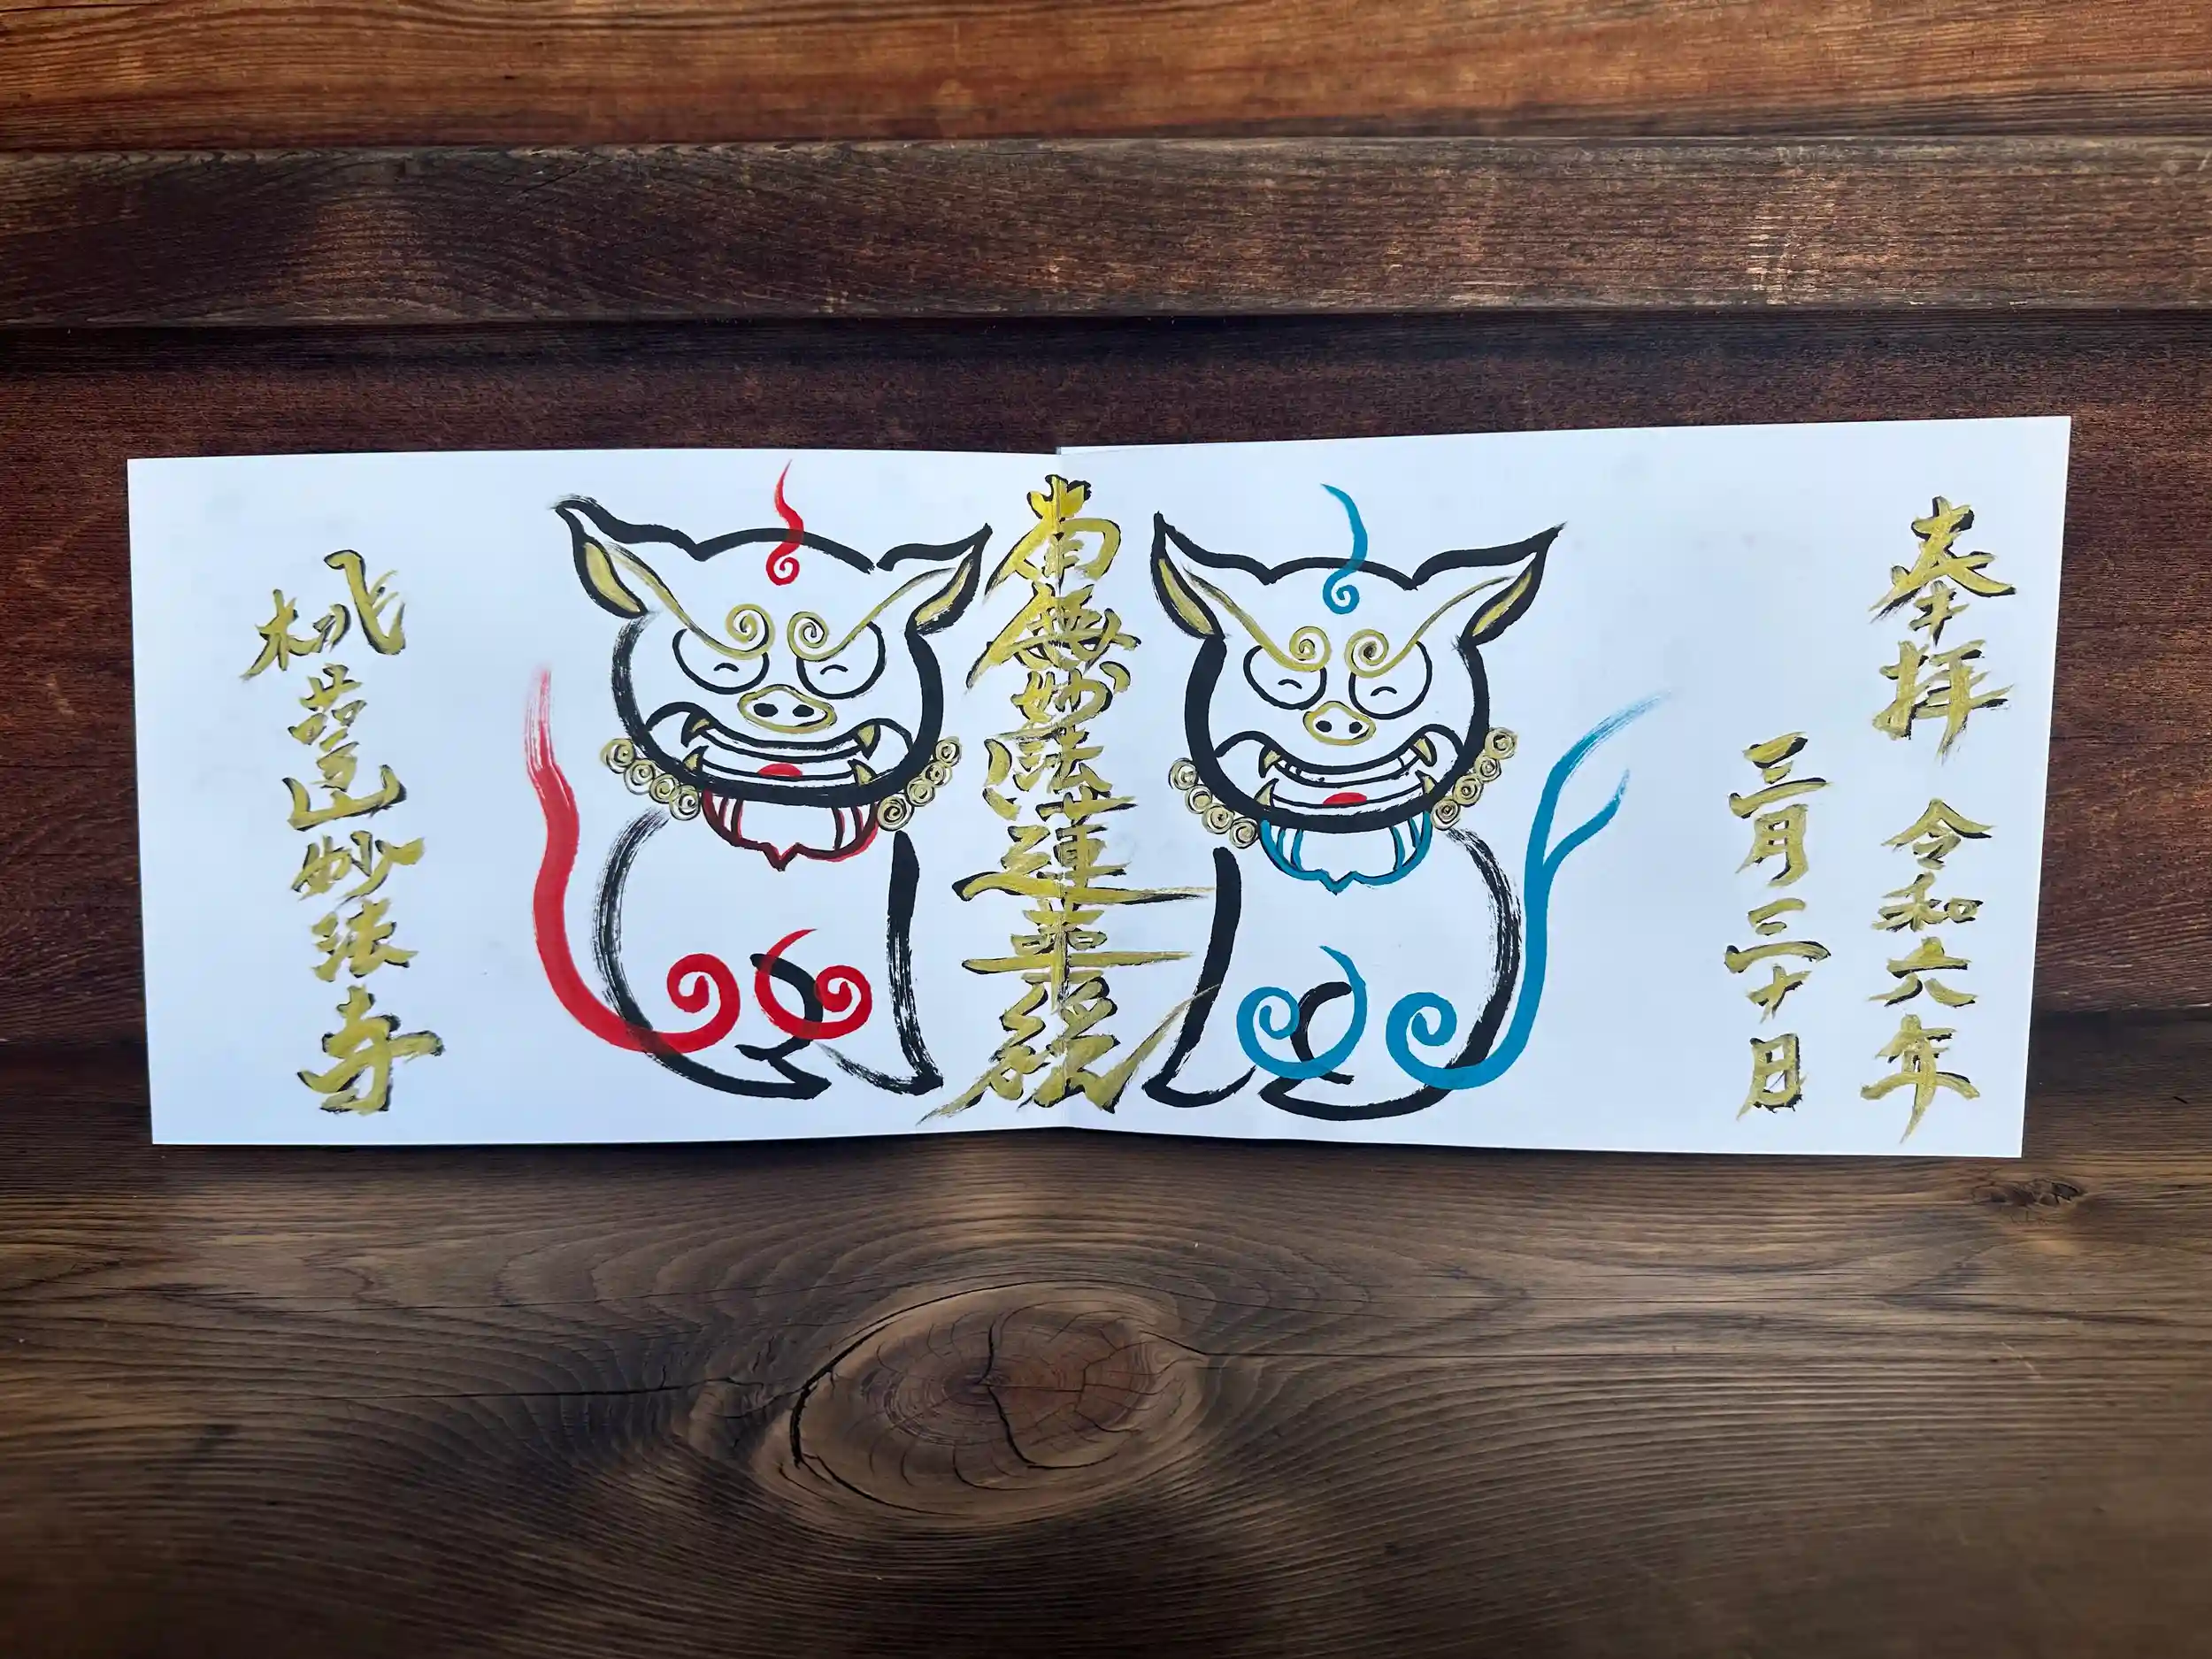 奉拝 令和六年
三月三十日
南無妙法蓮華経
桃 山妙法寺